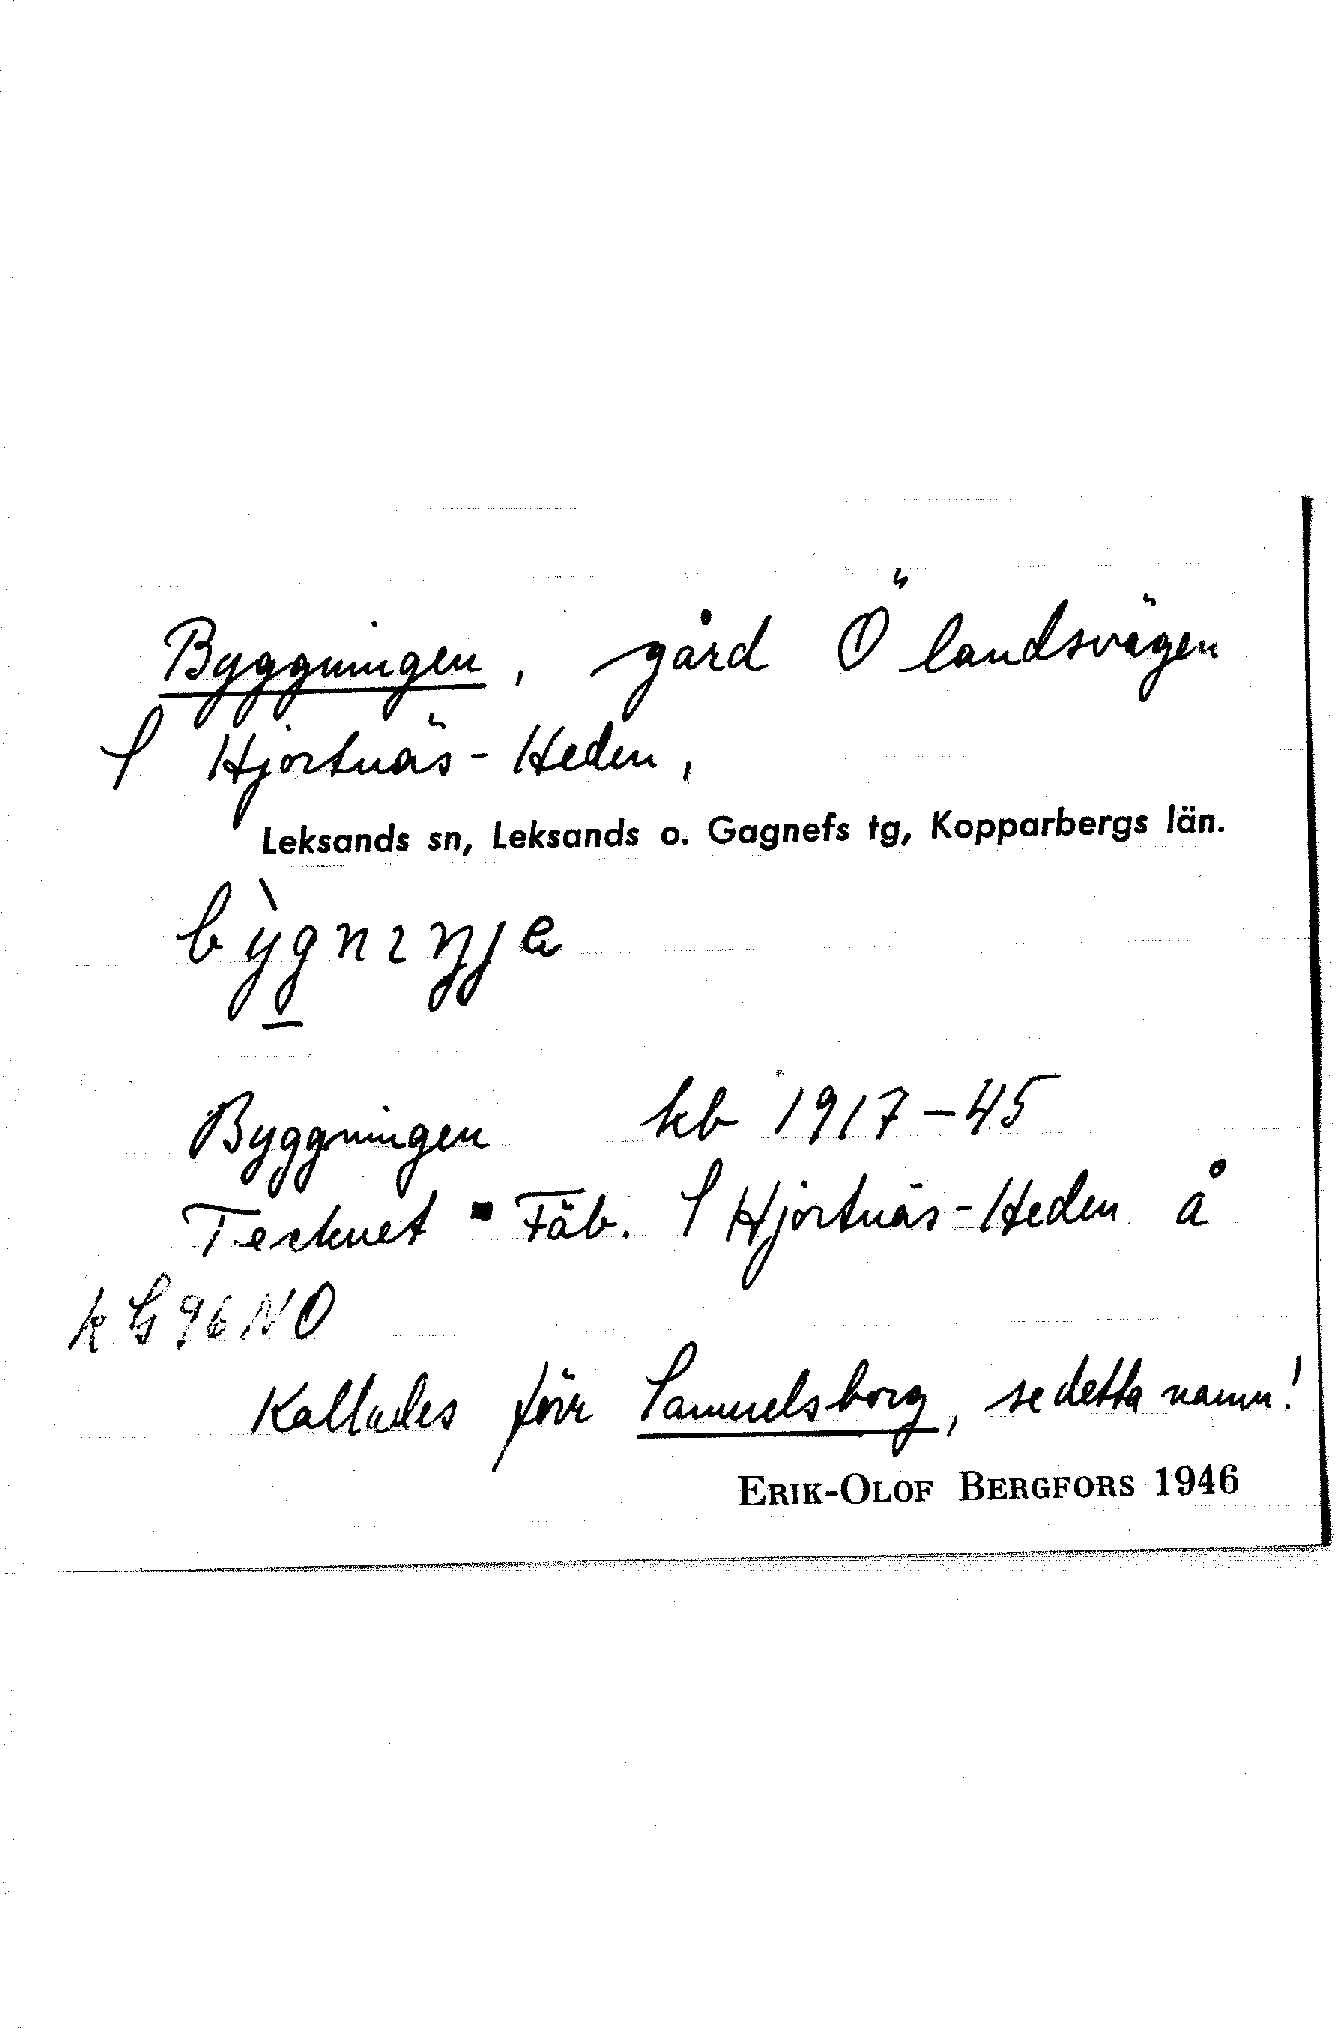 Byggningen, gård Ö landsvägen
S Hjortnäs-Heden,
Leksands sn, Leksands o. Gagnefs tg, Kopparbergs län.
bỳgnɪŋja
Byggningen kb 1917-45
Tecknet ▪ Fäb. S Hjortnäs-Heden å
k G 96 NO
Kallades förr Samuelsborg, se detta namn!
ERIK-OLOF BERGFORS 1946